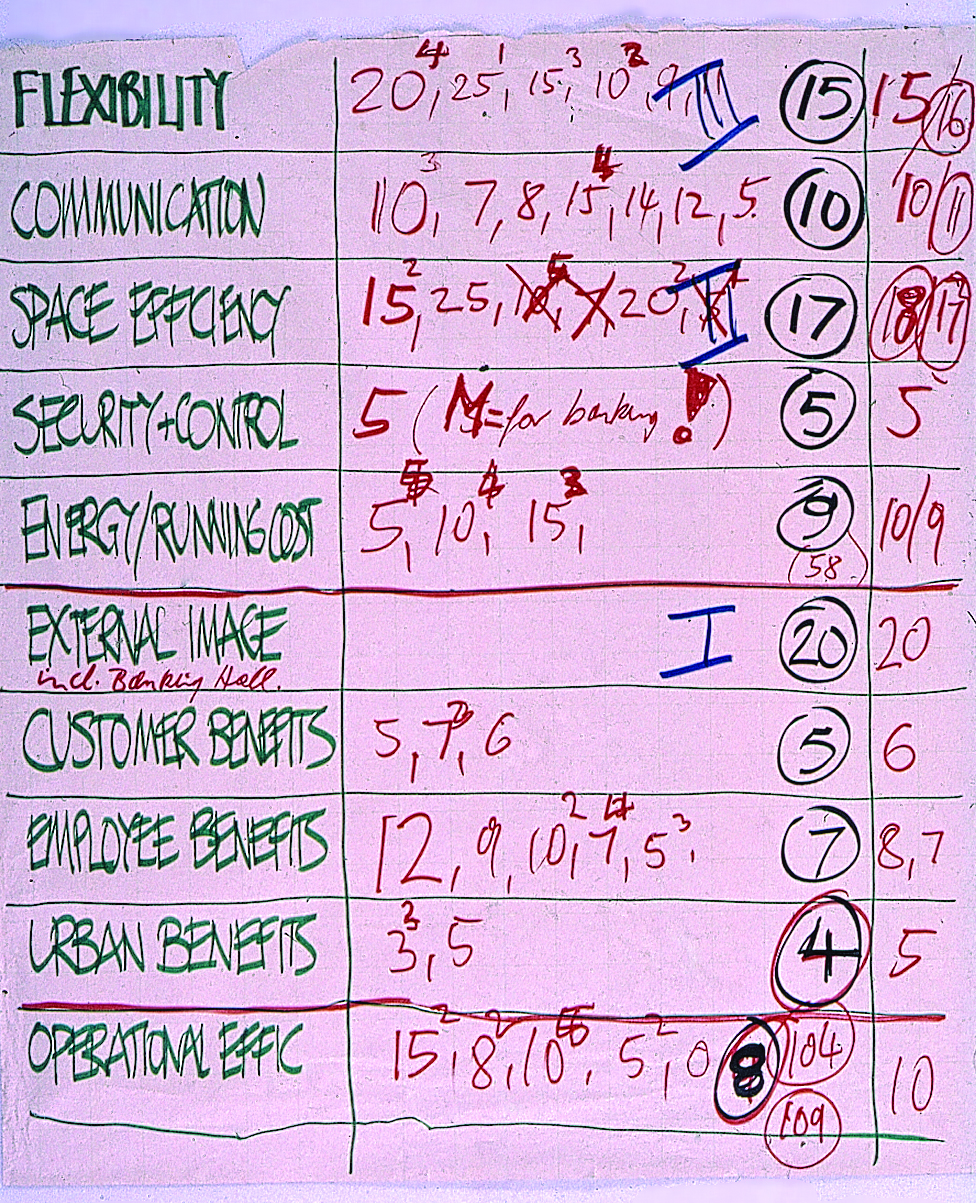 FLEXIBILITY 20⁴, 25¹, 15³, 10², 9, III 15 15 16
COMMUNICATION 10³, 7, 8, 15⁴, 14, 12, 5. 10 10 11
SPACE EFFICIENCY 15², 25, 20², II 17 18 17
SECURITY+CONTROL 5 (M=for banking !) 5 5
ENERGY/RUNNING COST 5⁵, 10⁴, 15³, 9 10/9
(58.)
EXTERNAL IMAGE I 20 20
incl. Banking Hall.
CUSTOMER BENEFITS 5, 7², 6 5 6
EMPLOYEE BENEFITS 12, 9, 10², 7⁴, 5³, 7 8,7
URBAN BENEFITS 3², 5 4 5
OPERATIONAL EFFIC 15², 8², 10⁵, 5², 0 8 104 10
109